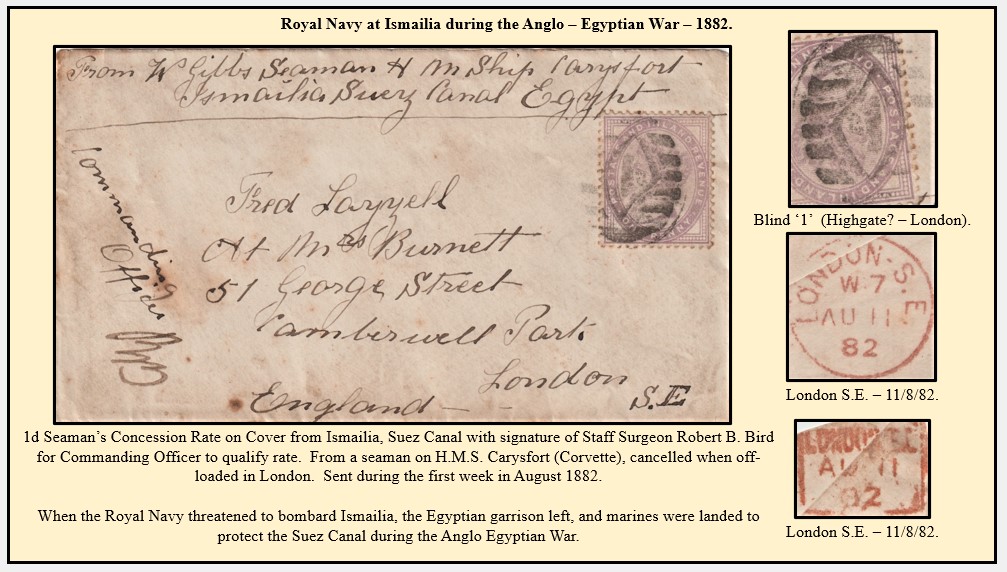 Royal Navy at Ismailia during the Anglo – Egyptian War – 1882.
From Wm Gibbs Seaman H M Ship Carysfort
Ismailia Suez Canal Egypt
Commanding
Officer
Fred
At Mrs Burnett
51 George Street
Camberwell Park
London
S.E
England
Blind ‘1’ (Highgate? – London).
LONDON-S.E
W 7
AU 11
82
London S.E. – 11/8/82.
LONDON
AU 11
82
London S.E. – 11/8/82.
1d Seaman’s Concession Rate on Cover from Ismailia, Suez Canal with signature of Staff Surgeon Robert B. Bird
for Commanding Officer to qualify rate. From a seaman on H.M.S. Carysfort (Corvette), cancelled when off-
loaded in London. Sent during the first week in August 1882.
When the Royal Navy threatened to bombard Ismailia, the Egyptian garrison left, and marines were landed to
protect the Suez Canal during the Anglo Egyptian War.